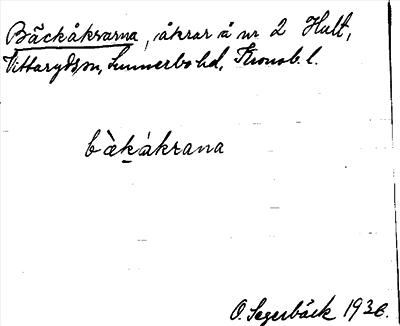 Bäckåkrarna, åkrar å nr 2 Hult,
Vittaryds sn, Sunnerbo hd, Kronob. l.
bàkákrana
O. Segerbäck 1936.